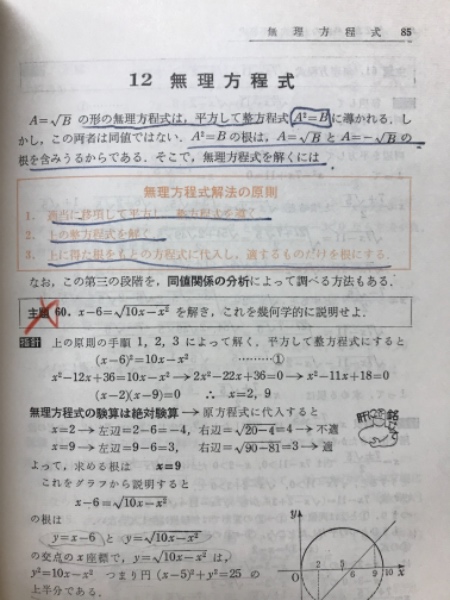 無理方程式 85
12 無理方程式
A=√B の形の無理方程式は，平方して整方程式 A²=B に導かれる．し
かし，この両者は同値ではない．A²=B の根は，A=√B と A=−√B の
根を含みうるからである．そこで，無理方程式を解くには
無理方程式解法の原則
1. 適当に移項して平方し，整方程式を導く．
2. 上の整方程式を解く．
3. 上に得た根をもとの方程式に代入し，適するものだけを根にする．
なお，この第三の段階を，同値関係の分析によって調べる方法もある．
主題 60. x−6=√10x−x² を解き，これを幾何学的に説明せよ．
指針 上の原則の手順 1, 2, 3 によって解く．平方して整方程式にすると
(x−6)²=10x−x² ………①
x²−12x+36=10x−x² → 2x²−22x+36=0 → x²−11x+18=0
(x−2)(x−9)=0 ∴ x=2, 9
無理方程式の験算は絶対験算 → 原方程式に代入すると
x=2 → 左辺=2−6=−4, 右辺=√20−4=4 → 不適
x=9 → 左辺=9−6=3, 右辺=√90−81=3 → 適
肝銘
よって，求める根は x=9
これをグラフから説明すると
x−6=√10x−x²
の根は
y=x−6 と y=√10x−x²
の交点の x 座標で，y=√10x−x² は，
y²=10x−x² つまり円 (x−5)²+y²=25 の
上半分である．
y
O 2 6 9 10 x